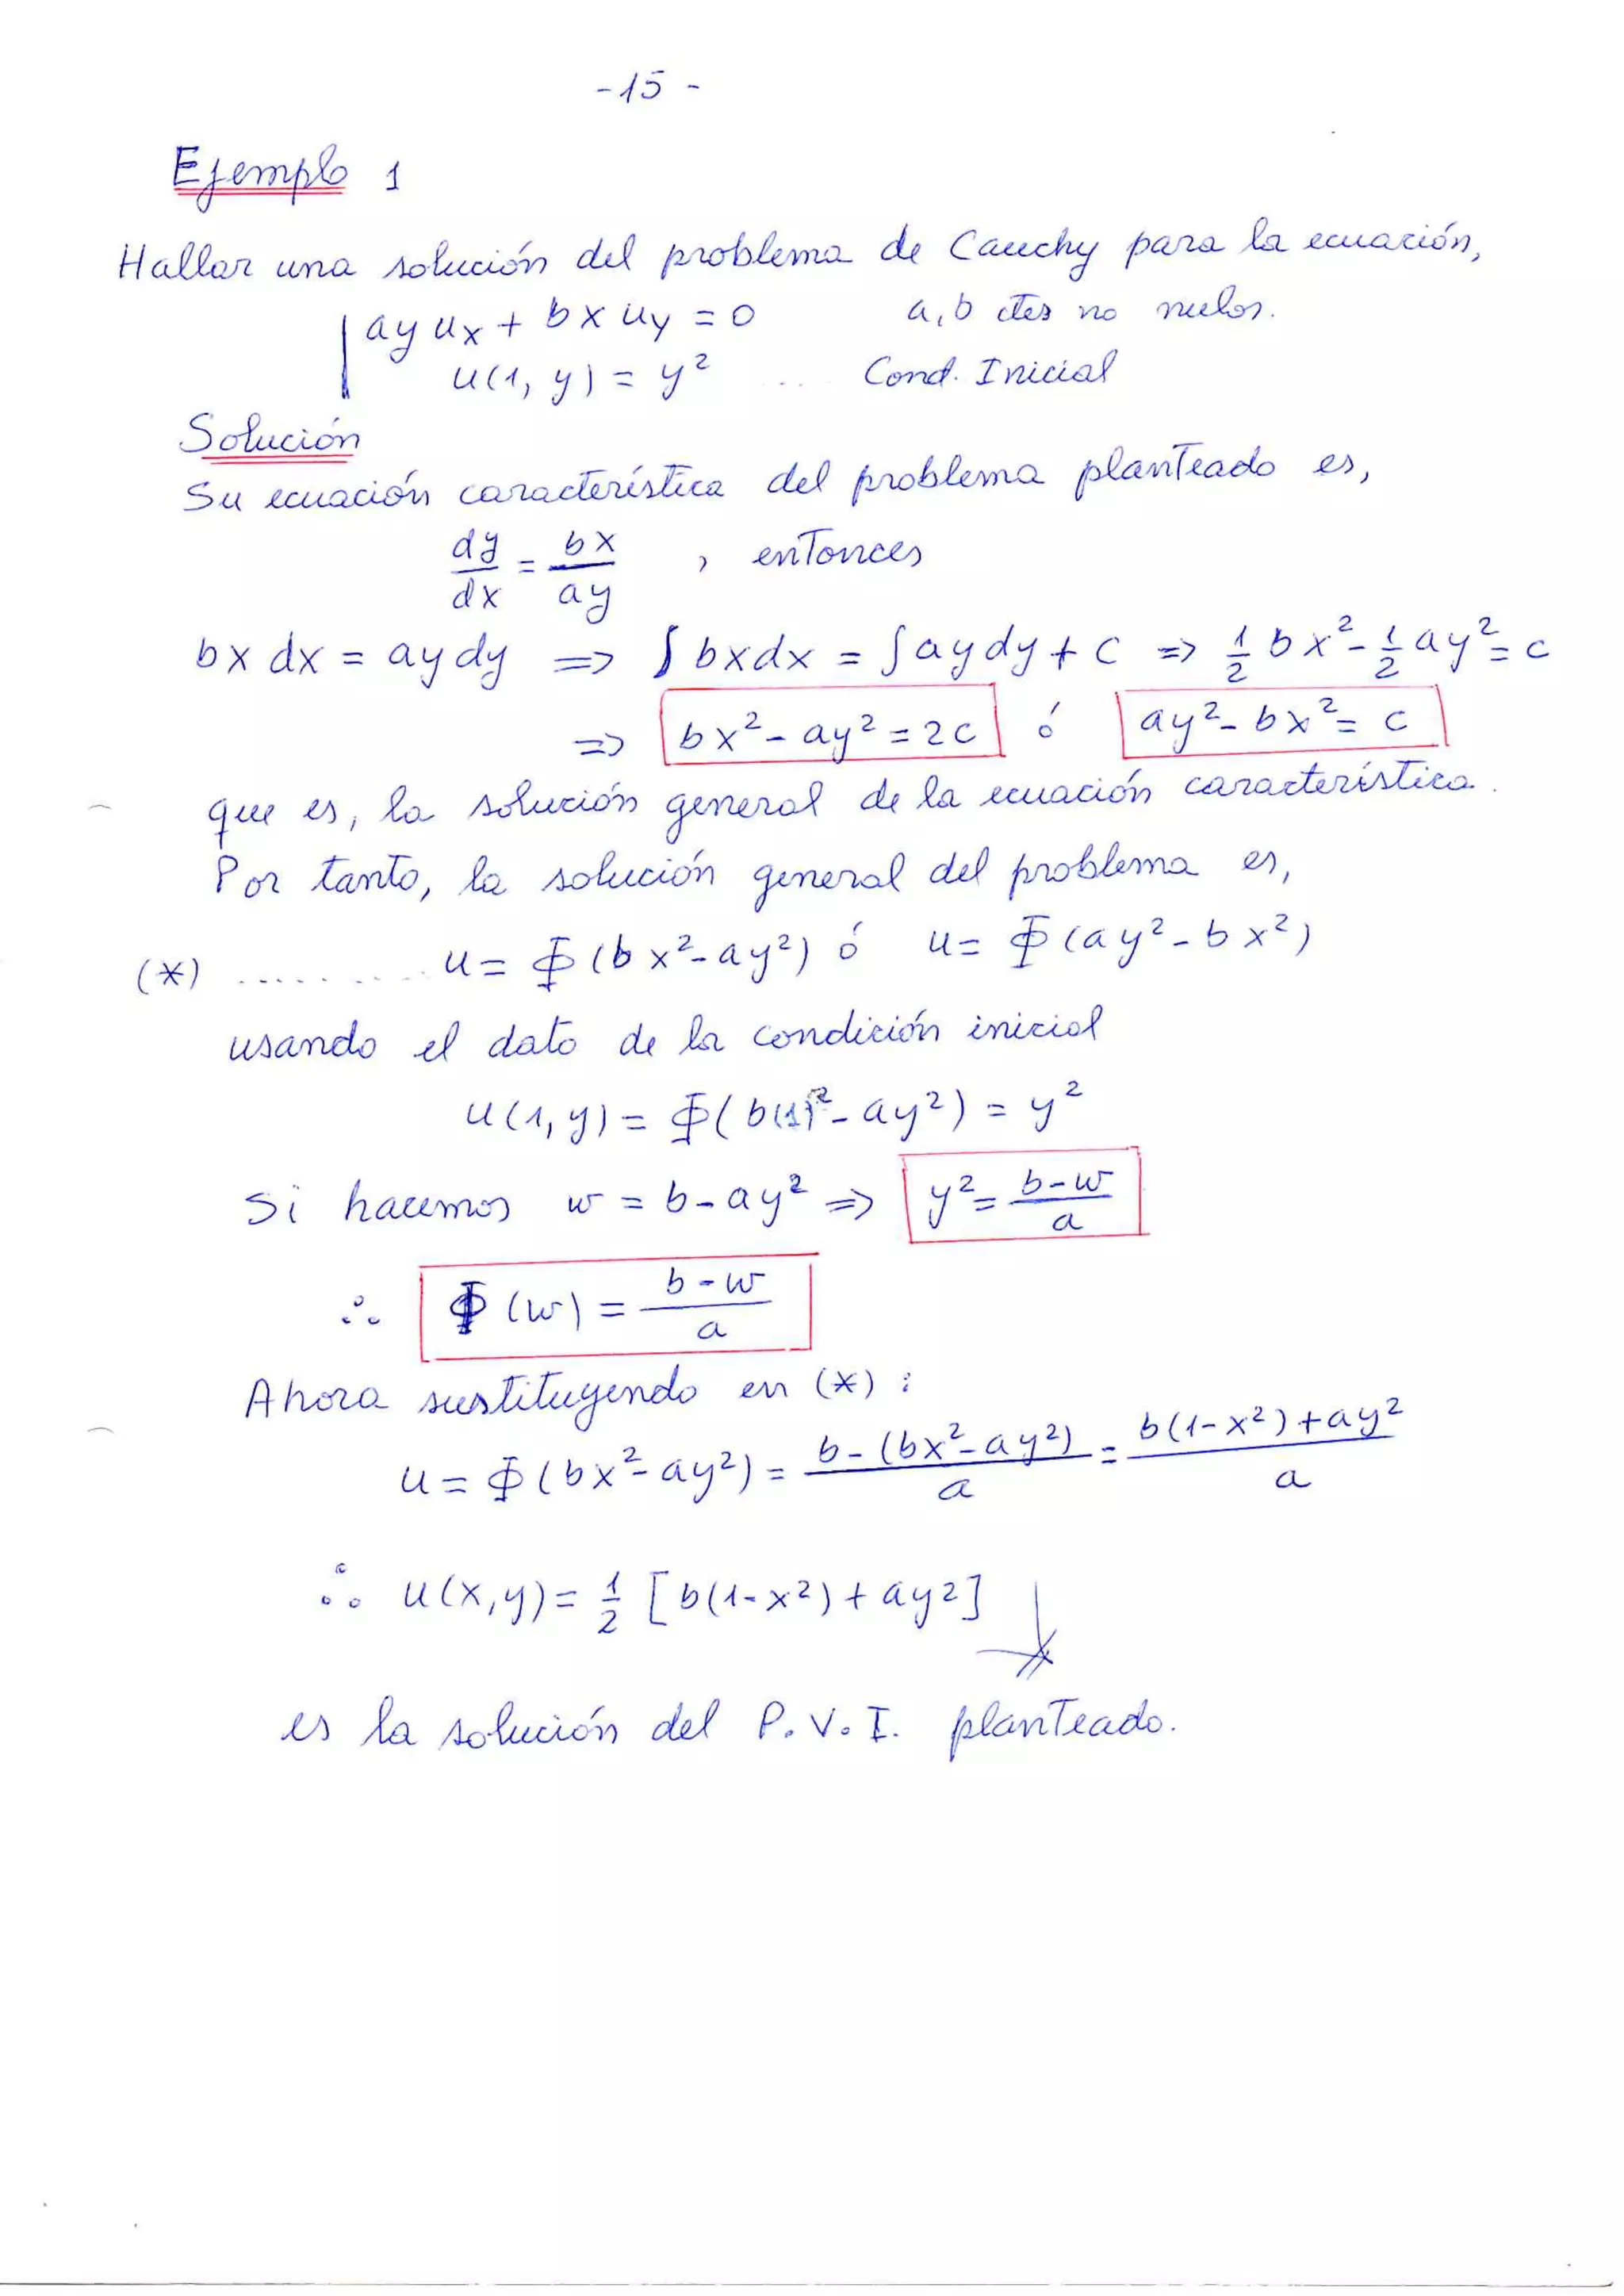 -15-
Ejemplo 1
Hallar una solución del problema de Cauchy para la ecuación,
ay ux + bx uy = 0 a,b ctes no nulos.
u(1, y) = y² ... Cond. Inicial
Solución
Su ecuación característica del problema planteado es,
dy/dx = bx/ay , entonces
bx dx = ay dy => ∫ bxdx = ∫ aydy + c => 1/2 bx² - 1/2 ay² = c
=> bx² - ay² = 2c ó ay² - bx² = c
que es, la solución general de la ecuación característica.
Por tanto, la solución general del problema es,
(*) .......... u = Φ (bx² - ay²) ó u = Φ (ay² - bx²)
usando el dato de la condición inicial
u(1, y) = Φ( b(1)² - ay²) = y²
Si hacemos w = b - ay² => y² = b-w/a
∴ Φ (w) = b-w/a
Ahora sustituyendo en (*) :
u = Φ (bx² - ay²) = b-(bx²-ay²)/a = b(1-x²)+ay²/a
∴ u(x,y) = 1/2 [b(1-x²) + ay²]
es la solución del P.V.I. planteado.